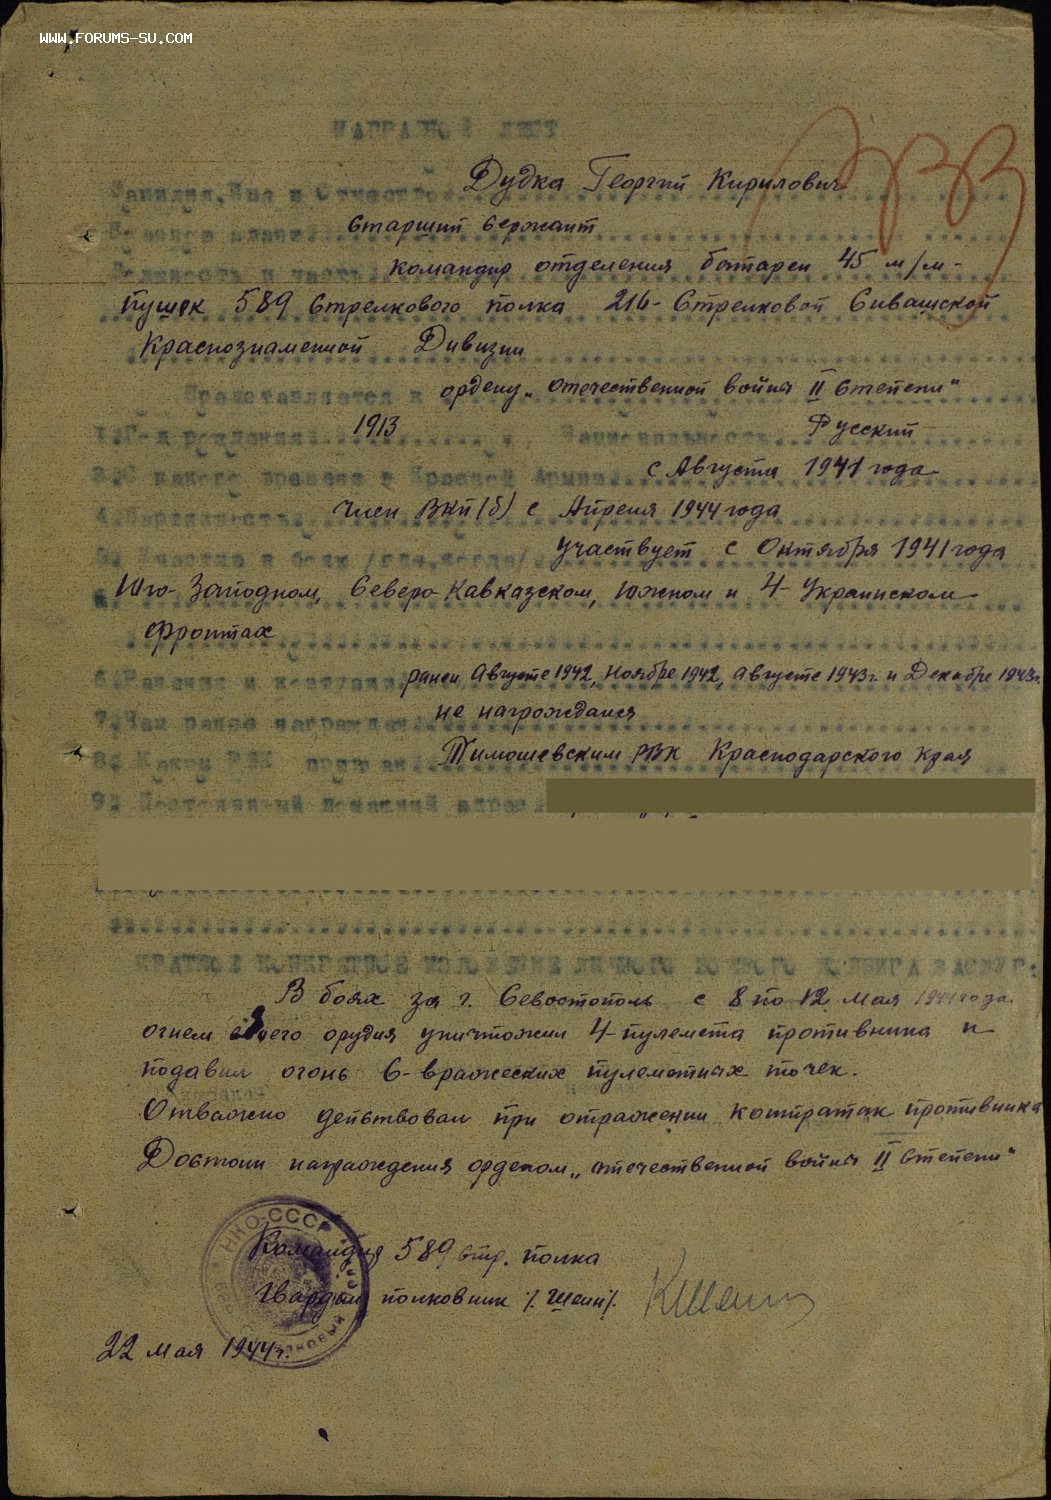 WWW.FORUMS-SU.COM
НАГРАДНОЙ ЛИСТ
Фамилия, Имя и Отчество Дудка Георгий Кирилович
Военное звание Старший Сержант
Должность и часть командир отделения батареи 45 м/м-
пушек 589 Стрелкового полка 216- Стрелковой Сивашской
Краснознаменной Дивизии
Представляется к ордену „Отечественной война II Степени"
1. Год рождения 1913 Национальность Русский
3. С какого времени в Красной Армии с Августа 1941 года
4. Партийность член ВКП(б) с Апреля 1944 года
5. Участие в боях /где, когда/ участвует с Октября 1941 года
Юго-Западном, Северо Кавказском, Южном и 4-Украинском
фронтах
6. Ранения и контузии ранен Августе 1942, Ноябре 1942, Августе 1943 г. и Декабре 1943 г.
7. Чем ранее награжден не награждался
8. Каким РВК призван Тимошевским РВК Краснодарского края
9. Постоянный домашний адрес
КРАТКОЕ КОНКРЕТНОЕ ИЗЛОЖЕНИЕ ЛИЧНОГО БОЕВОГО ПОДВИГА И ЗАСЛУГ:
В боях за г. Севастополь с 8 по 12 мая 1944 года.
огнем своего орудия уничтожил 4 пулемета противника и
подавил огонь 6- вражеских пулеметных точек.
Отважно действовал при отражении контратак противника
Достоин награждения орденом „Отечественной война II Степени"
Командир 589 стр. полка
Гвардии полковник /. Шеин/.
22 мая 1944 г.
НКО-СССР